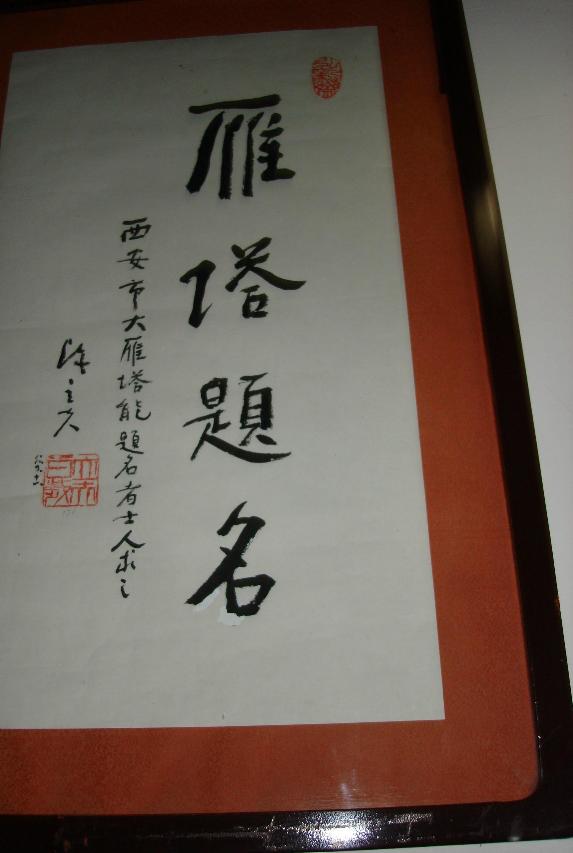 雁塔題名
西安市大雁塔能題名者士人求之
陳立夫